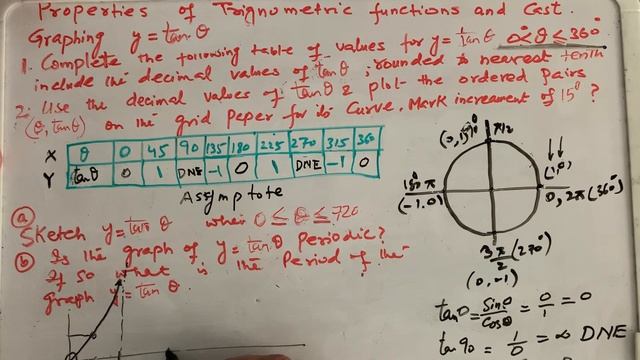 Properties of Trignometric functions and Cast.
Graphing y = tan θ
1. Complete the following table of values for y = tan θ 0° ≤ θ ≤ 360°
include the decimal values of tan θ, rounded to nearest tenth
2. Use the decimal values of tan θ & plot the ordered pairs
(θ, tan θ) on the grid paper for its curve. Mark increament of 15°?
X θ 0 45 90 135 180 225 270 315 360
Y tan θ 0 1 DNE -1 0 1 DNE -1 0
Assymptote
(a)
Sketch y = tan θ when 0 ≤ θ ≤ 720
(b) Is the graph of y = tan θ Periodic?
If so what is the Period of the
graph y = tan θ.
π/2
(1,0)
180° π
(-1.0)
0, 2π (360°)
3π/2 (270°)
(0, -1)
tan 0 = Sinθ/Cosθ = 0/1 = 0
tan 90 = 1/0 = ∞ DNE